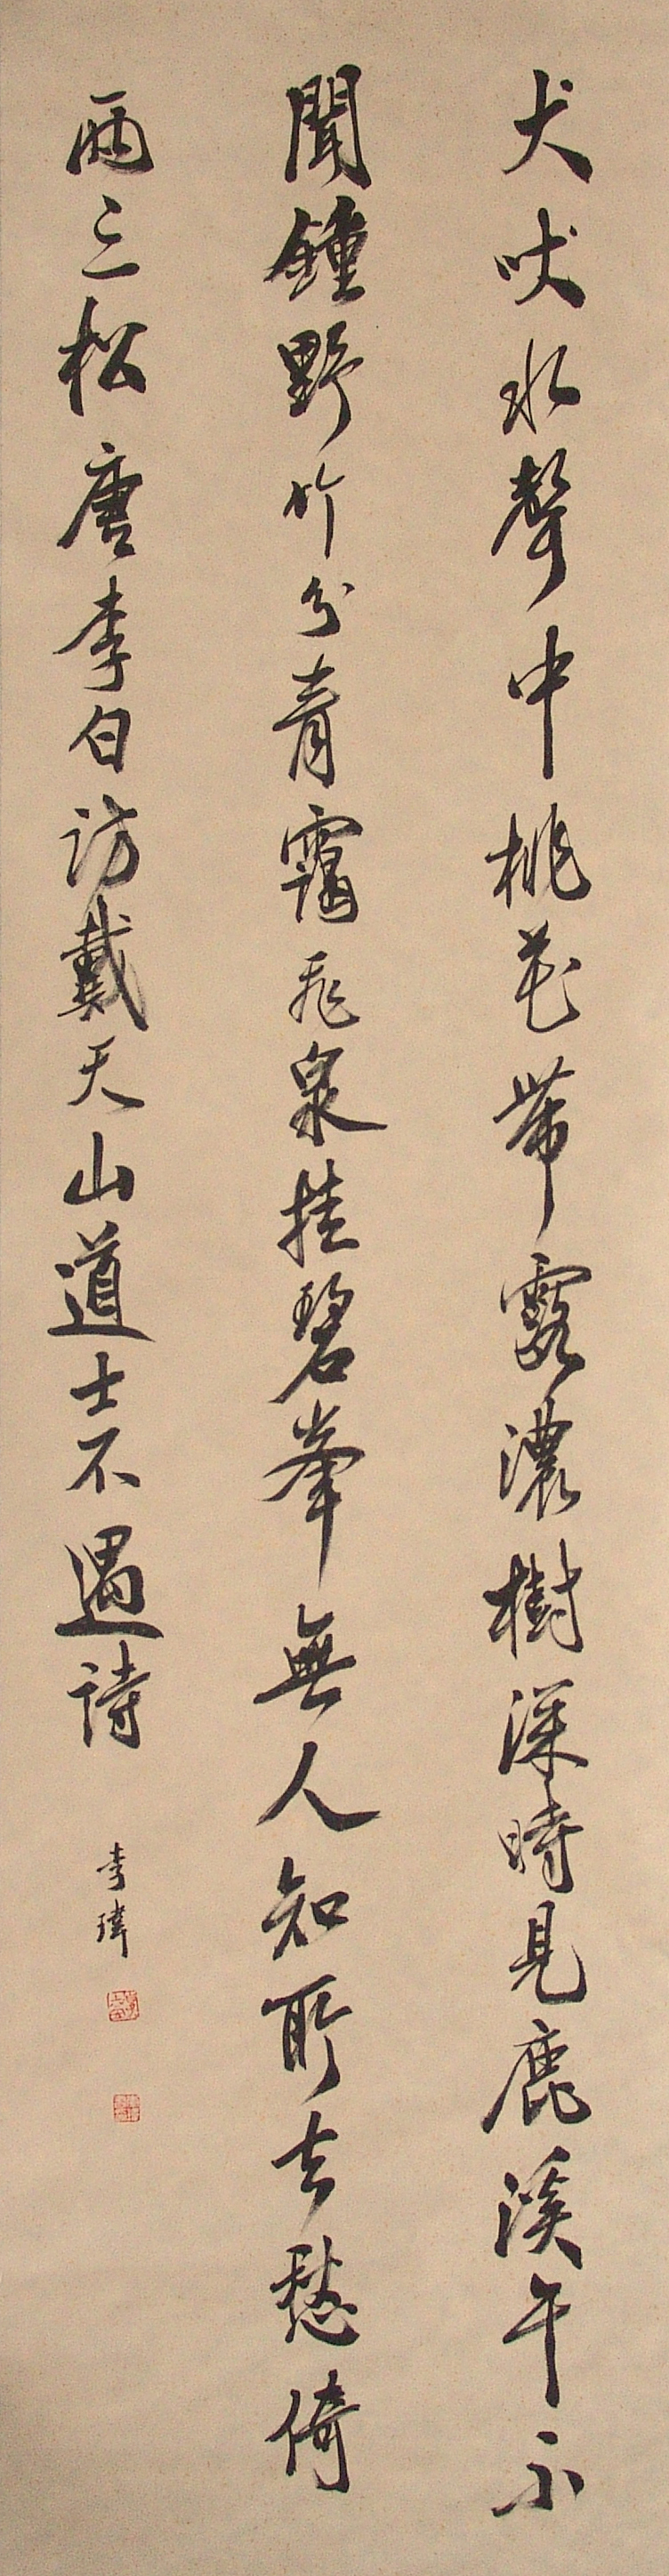 犬吠水聲中桃花帶露濃樹深時見鹿溪午不
聞鐘野竹分青靄飛泉挂碧峯無人知所去愁倚
兩三松唐李白訪戴天山道士不遇詩
李瑋